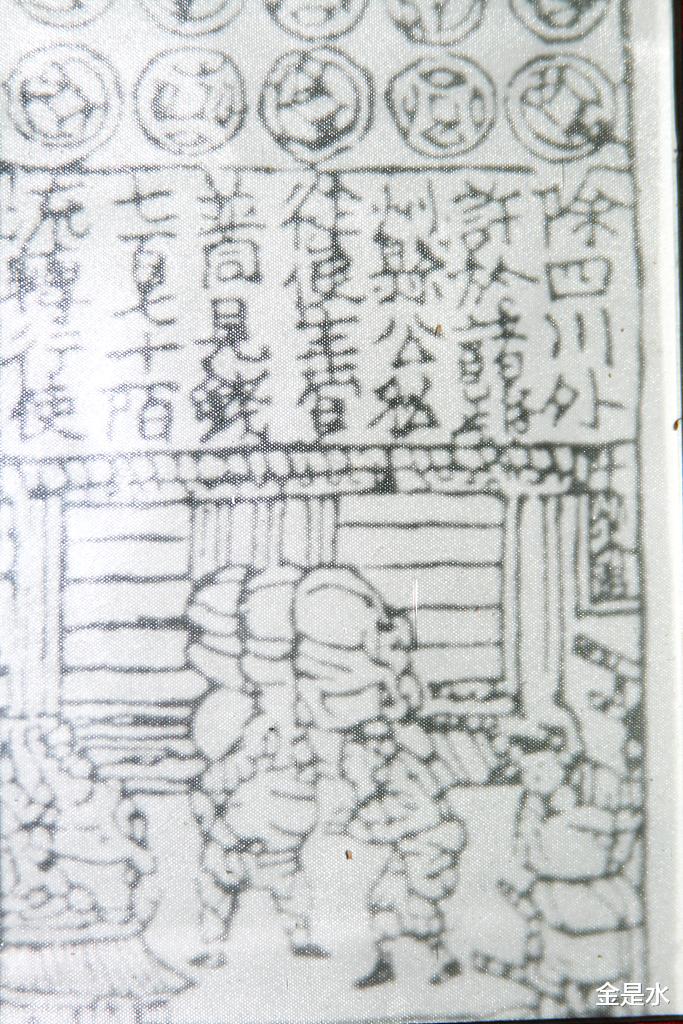 除四川外
許於諸路
州縣公私
從便主管
並同見錢
七百七十陌
流轉行使
千斯倉
金是水